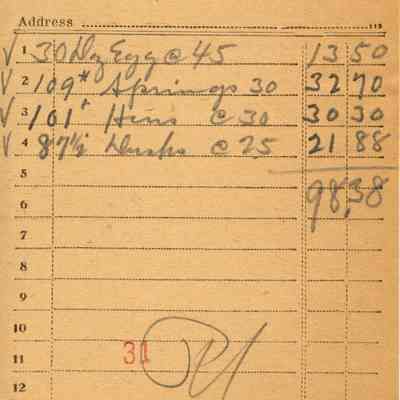 Address 115
✓ 1 30 Dz Eggs @ 45 13 50
✓ 2 109# Springs 30 32 70
✓ 3 101# Hens @ 30 30 30
✓ 4 87½ Ducks @ 25 21 88
5
98,38
6
7
8
9
10
11 31
12